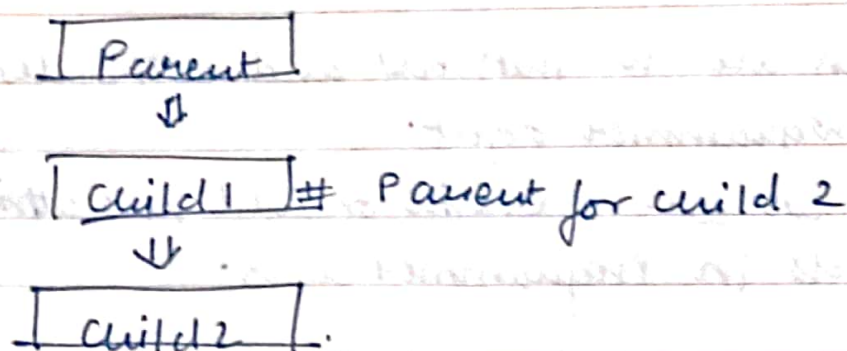 Parent
⇓
Child1 # Parent for child 2
⇓
Child2.